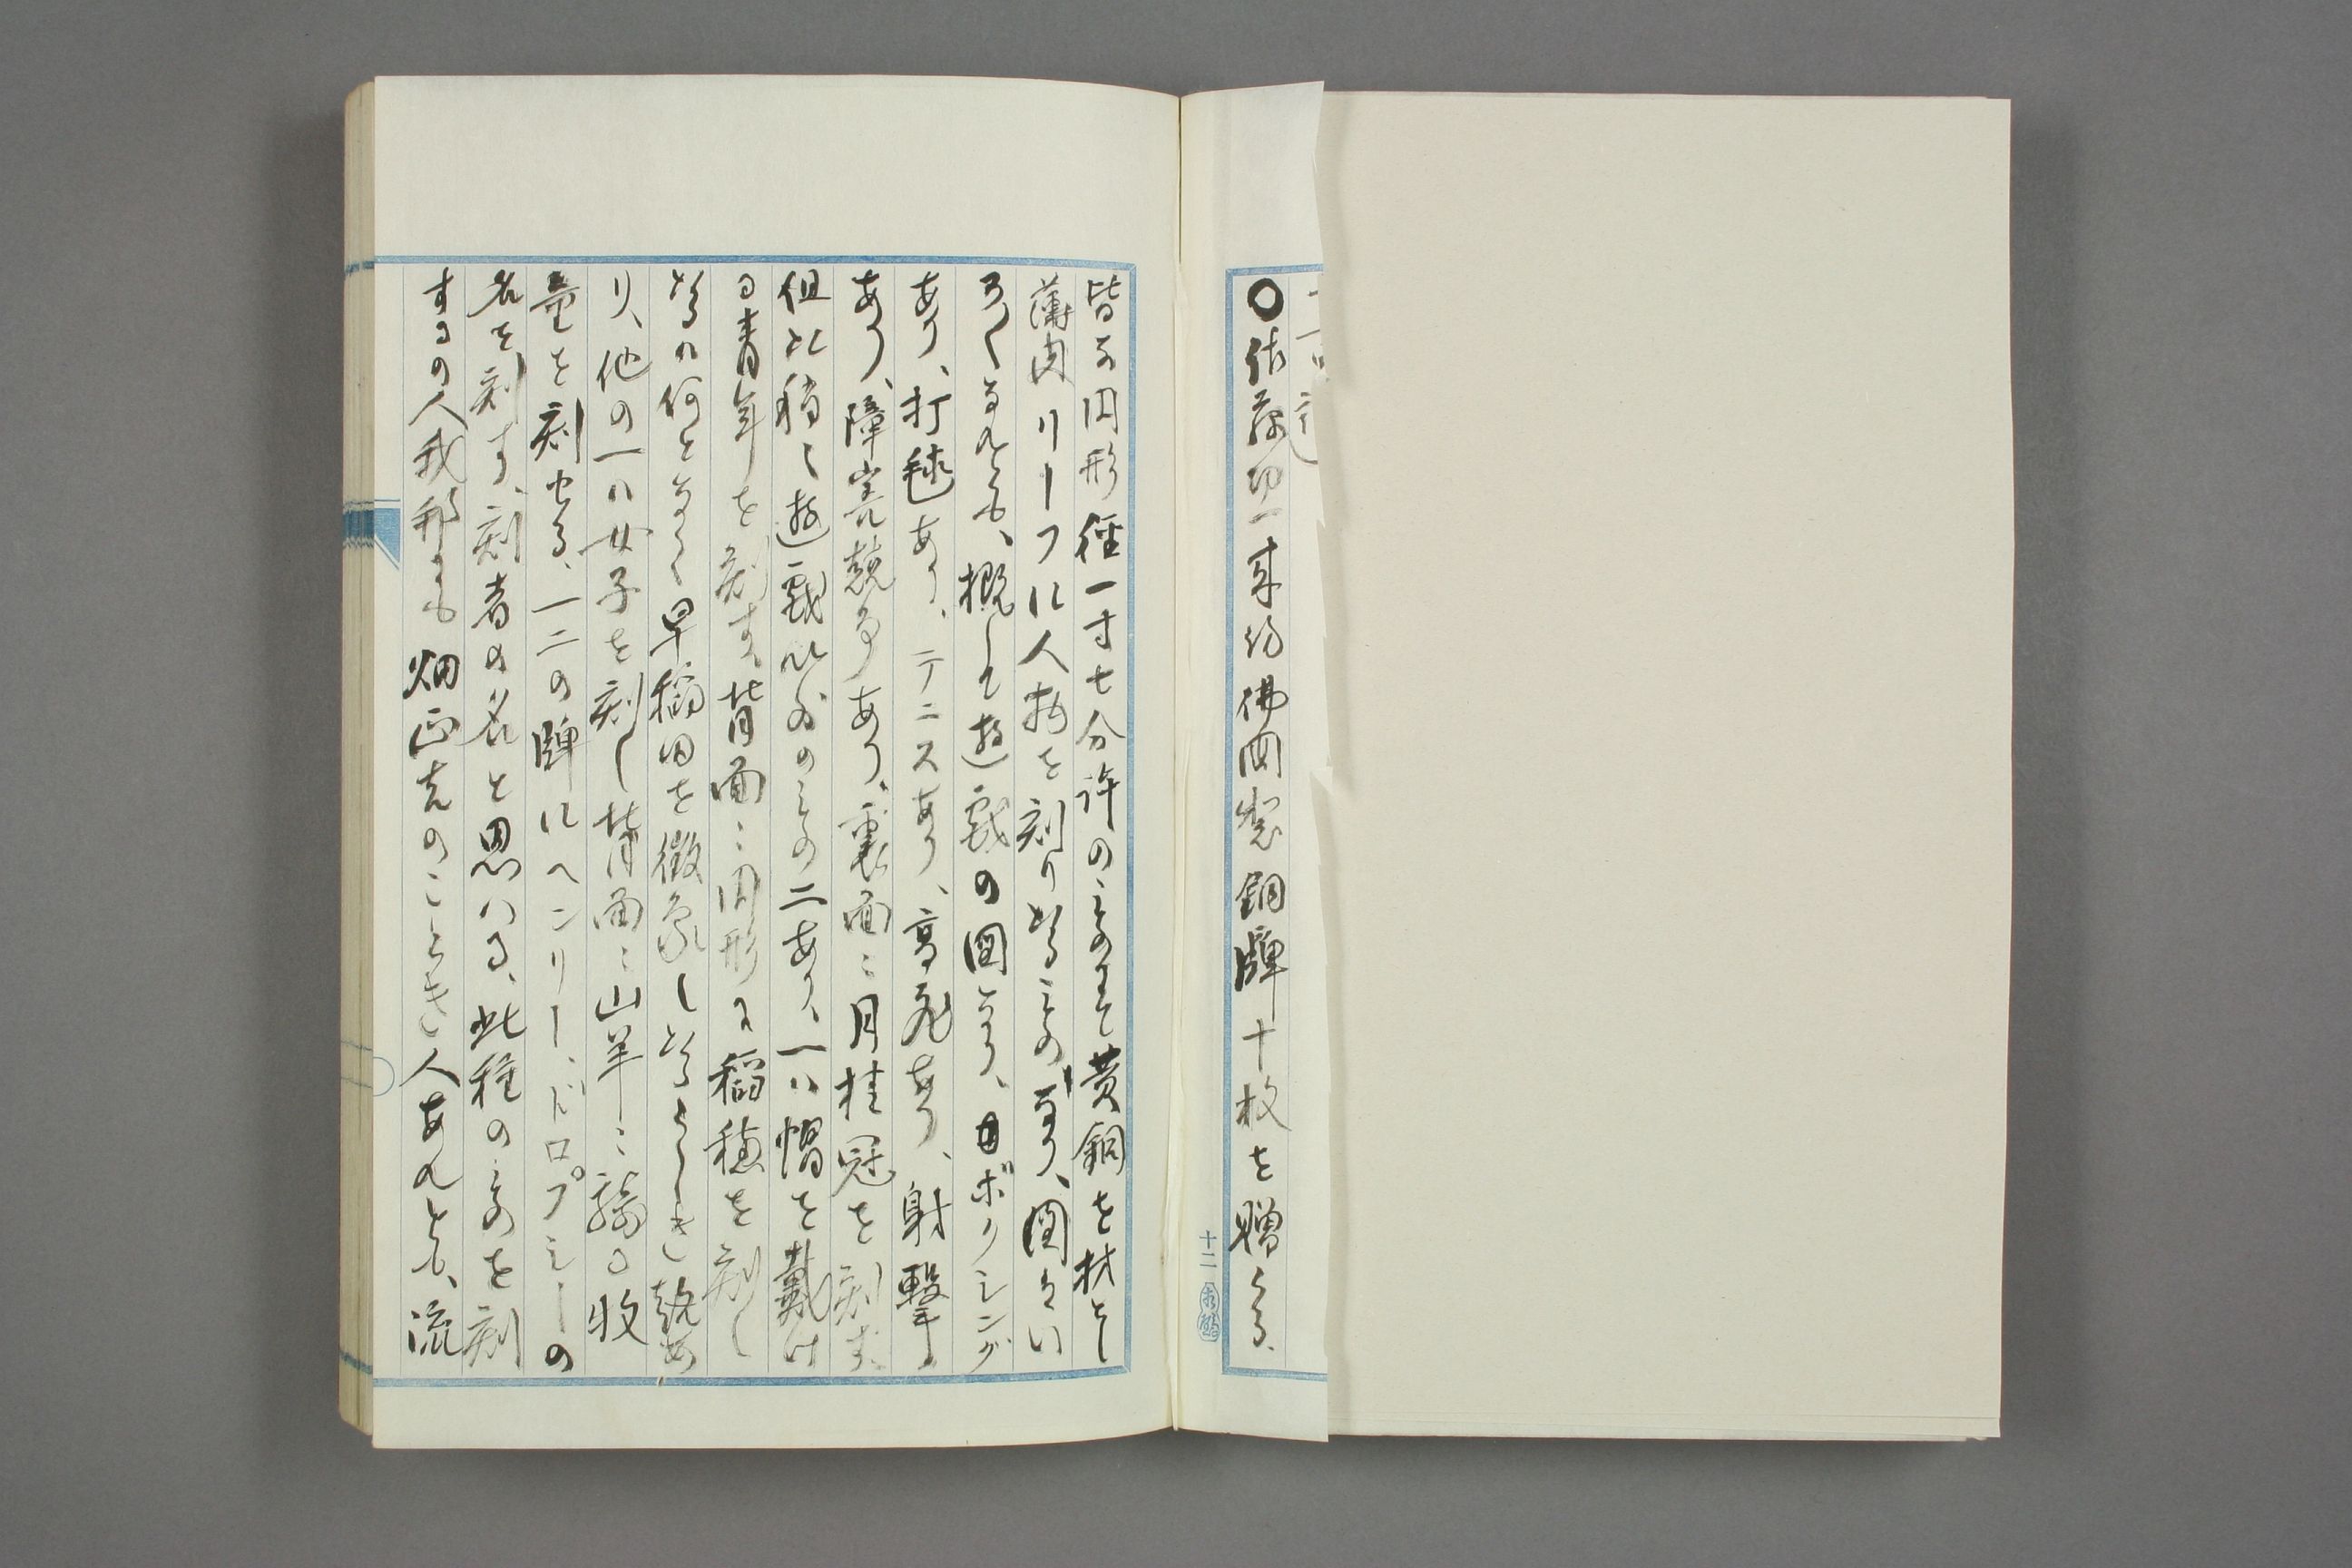 ○佐藤功一来訪佛国製銅牌十枚を贈らる、
十二
皆な円形径一寸七分許のものにて黄銅を材とし
薄肉リーフに人物を刻りたるものなり、図をい
ろ〱なれども、概して遊戯の図なり、ボクシング
あり、打毬あり、テニスあり、高飛あり、射撃
あり、障害競争あり、裏面ニ月桂冠を刻す、
但此種之遊戯以外のもの二あり、一ハ帽を戴け
る青年を刻す、背面ニ円形に稲穂を刻し
たるハ何となく早稲田を徴象したるらしき趣あ
り、他の一ハ女子を刻し背面ニ山羊ニ騎る牧
童を刻せる、一二の牌にヘンリー、ドロプシーの
名を刻す、刻者の名と思はる、此種のものを刻
するの人我邦にも畑正吉のことき人あれども、流